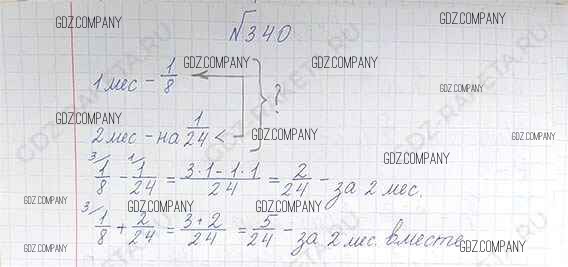 GDZ.COMPANY
№340
GDZ.COMPANY
GDZ.COMPANY GDZ.COMPANY GDZ.COMPANY
1 мес - 1/8
GDZ.COMPANY
?
2 мес - на 1/24 <
GDZ.COMPANY GDZ.COMPANY
GDZ-RAKETA.RU
3/ 1/8 - 1/ 1/24 = 3·1-1·1/24 = 2/24 - за 2 мес.
GDZ.COMPANY
GDZ.COMPANY GDZ.COMPANY GDZ.COMPANY
3/ 1/8 + 2/24 = 3+2/24 = 5/24 - за 2 мес. вместе
GDZ.COMPANY GDZ.COMPANY GDZ.COMPANY